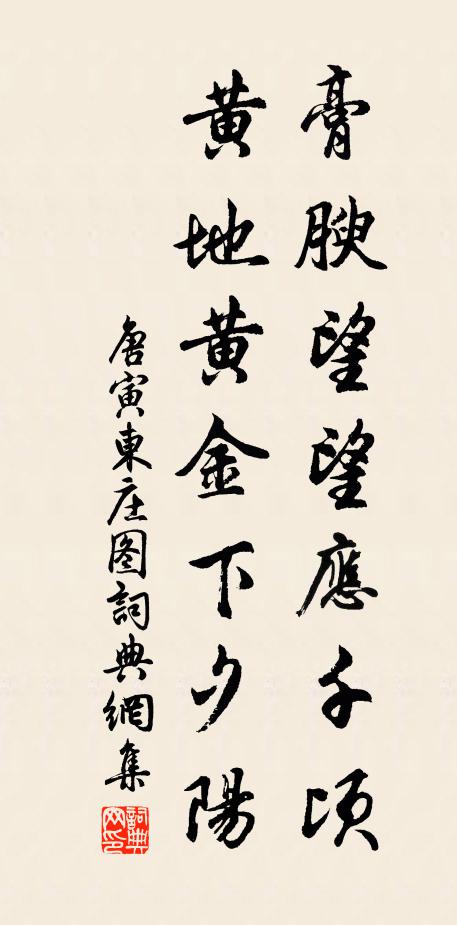 膏腴望望應千頃
黃地黃金下夕陽
唐寅東庄图詞典網集
詞典网印